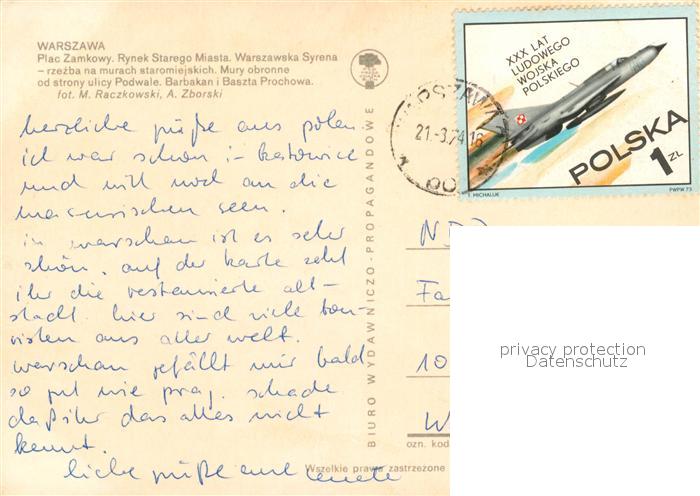 WARSZAWA
Plac Zamkowy. Rynek Starego Miasta. Warszawska Syrena
– rzeźba na murach staromiejskich. Mury obronne
od strony ulicy Podwale. Barbakan i Baszta Prochowa.
fot. M. Raczkowski, A. Zborski
herzliche grüße aus polen.
ich war schon in katowice
und will noch an die
masurischen seen.
in warschau ist es sehr
schön. auf der karte seht
ihr die restaurierte alt-
stadt. hier sind viele tou-
risten aus aller welt.
warschau gefällt mir bald
so gut wie prag. schade
daß ihr das alles nicht
kennt.
liebe grüße eure renate
BIURO WYDAWNICZO-PROPAGANDOWE
Wszelkie prawa zastrzeżone
ozn. kod
WARSZAWA
21.-3.74.16
XXX LAT
LUDOWEGO
WOJSKA
POLSKIEGO
POLSKA
1 ZŁ
T. MICHALUK
PWPW 73
Fa
10
W
privacy protection
Datenschutz